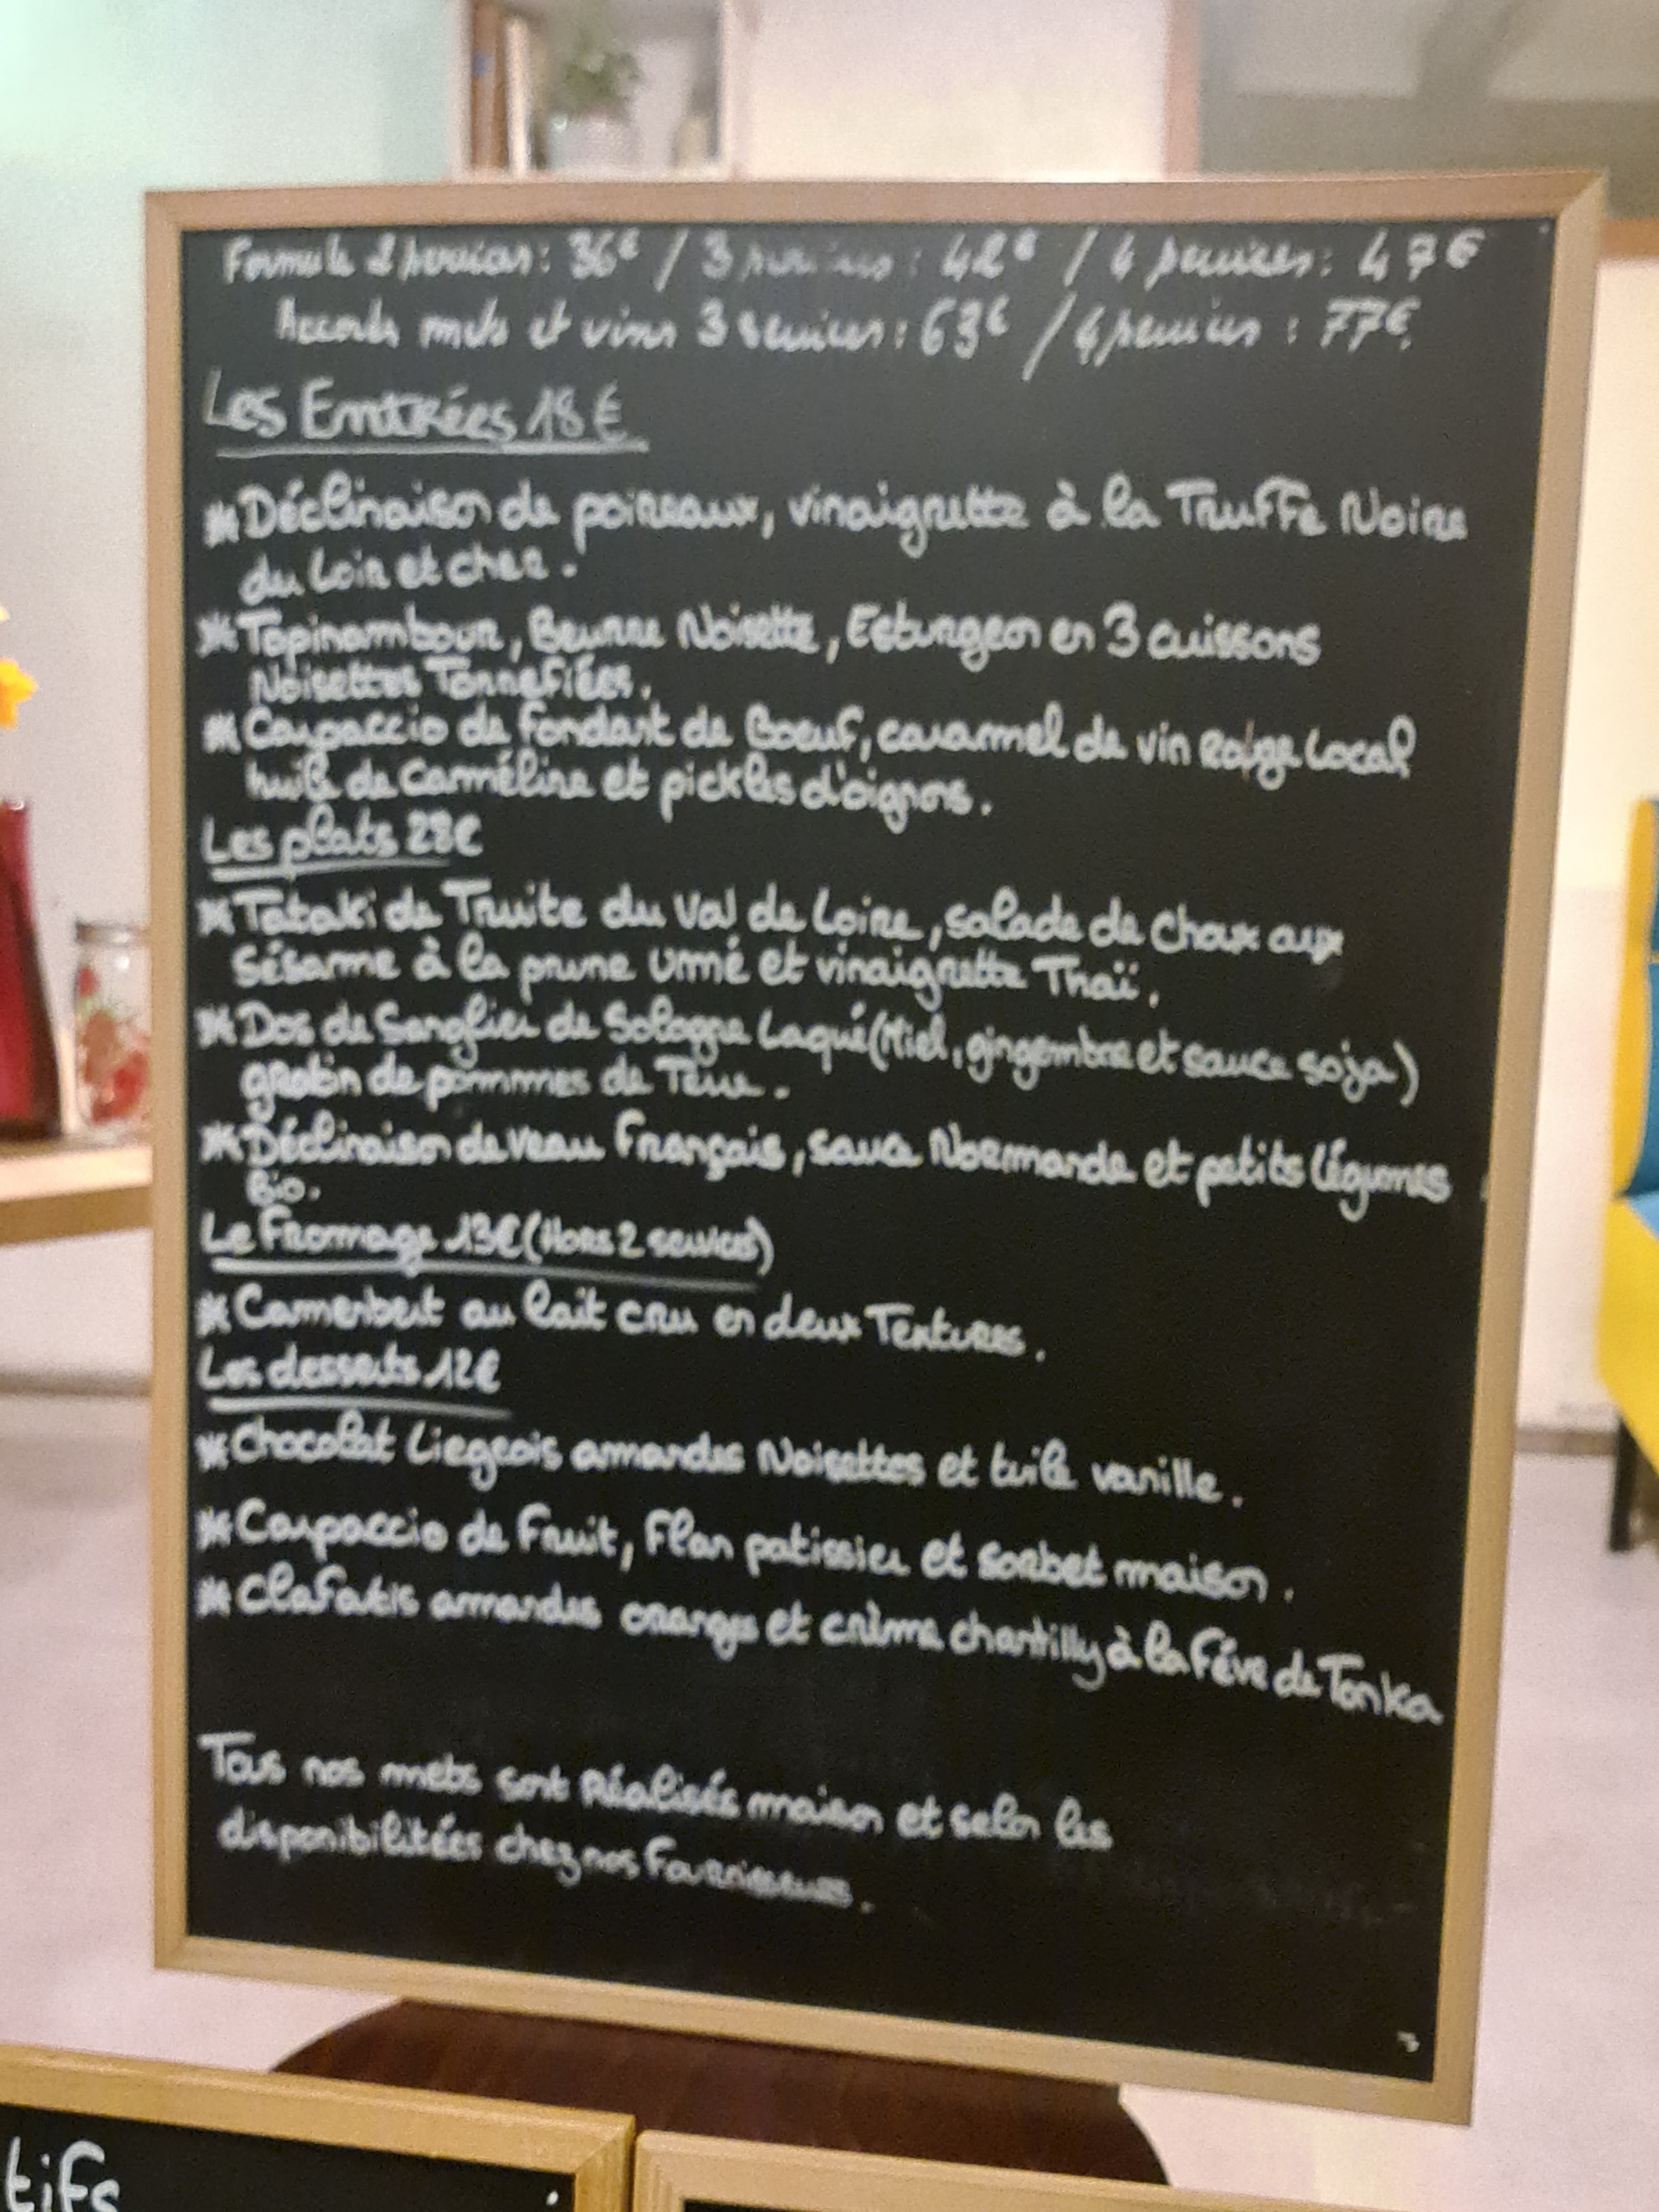 Formule 2 services: 36€ / 3 services: 42€ / 4 services: 47€
Accords mets et vins 3 services: 63€ / 4 services : 77€
Les Entrées 18€
* Déclinaison de poireaux, vinaigrette à la Truffe Noire
du Loir et cher.
* Topinambour, Beurre Noisette, Esturgeon en 3 cuissons
Noisettes Torrefiées.
* Carpaccio de fondant de Boeuf, caramel de vin Rouge Local
huile de Caméline et pickles d'oignons.
Les plats 28€
* Tataki de Truite du Val de Loire, salade de Choux aux
Sésame à la prune Umé et vinaigrette Thaï.
* Dos de Sanglier de Sologne Laqué (Miel, gingembre et sauce soja)
gratin de pommes de Terre.
* Déclinaison de veau Français, sauce Normande et petits légumes
Bio.
Le Fromage 13€ (Hors 2 services)
* Camenbert au lait cru en deux Textures.
Les desserts 12€
* Chocolat Liegeois amandes Noisettes et tuile vanille.
* Carpaccio de Fruit, Flan patissier et sorbet maison.
* Clafoutis amandes oranges et crème chantilly à la Féve de Tonka
Tous nos mets sont Réalisés maison et selon les
disponibilitées chez nos Fournisseurs.
tifs